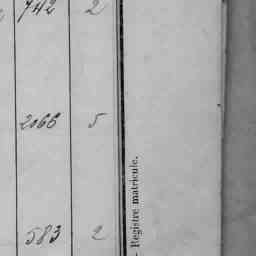 742 2
2066 5
583 2
- Registre matricule.